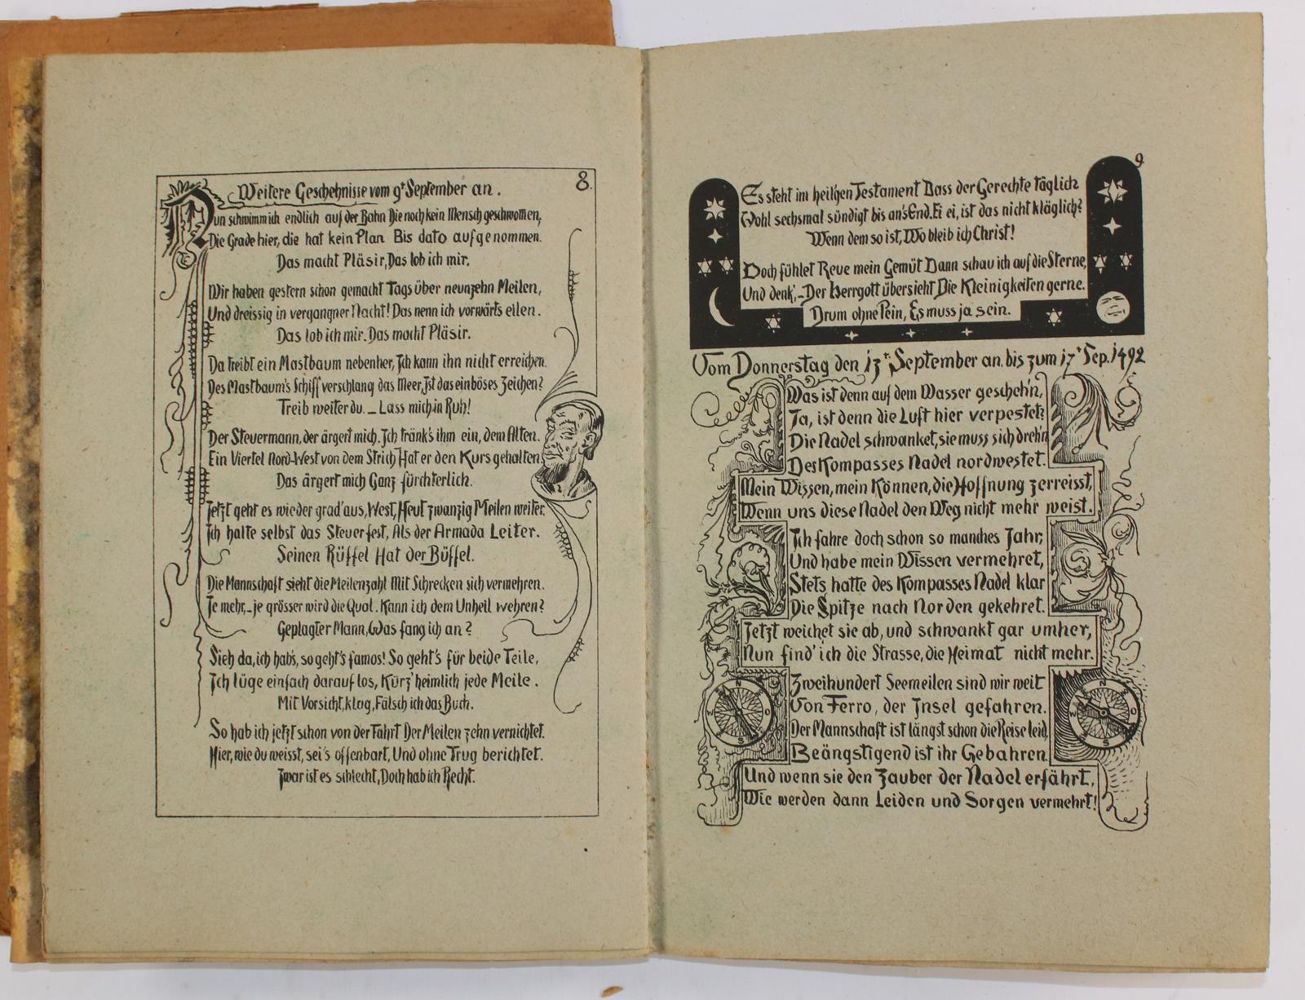 8.
Weitere Geschehnisse vom 9t September an.
Nun schwimm ich endlich auf der Bahn Die noch kein Mensch geschwommen,
Die Grade hier, die hat kein Plan Bis dato aufgenommen.
Das macht Pläsir, Das lob ich mir.
Wir haben gestern schon gemacht Tags über neunzehn Meilen,
Und dreissig in vergangner Nacht! Das nenn ich vorwärts eilen.
Das lob ich mir. Das macht Pläsir.
Da treibt ein Mastbaum nebenher, Ich kann ihn nicht erreichen.
Des Mastbaum's Schiff verschlang das Meer, Ist das ein böses Zeichen?
Treib weiter du. _ Lass mich in Ruh!
Der Steuermann, der ärgert mich. Ich tränk's ihm ein, dem Alten.
Ein Viertel Nord-West von dem Strich Hat er den Kurs gehalten.
Das ärgert mich Ganz fürchterlich.
Jetzt geht es wieder grad'aus, West, Heut zwanzig Meilen weiter.
Ich halte selbst das Steuer fest, Als der Armada Leiter.
Seinen Rüffel Hat der Büffel.
Die Mannschaft sieht die Meilenzahl Mit Schrecken sich vermehren.
Je mehr,_ je grösser wird die Qual. Kann ich dem Unheil wehren?
Geplagter Mann, Was fang ich an?
Sieh da, ich hab's, so geht's famos! So geht's für beide Teile,
Ich lüge einfach darauf los, Kürz' heimlich jede Meile.
Mit Vorsicht, klog, Fälsch ich das Buch.
So hab ich jetzt schon von der Fahrt Der Meilen zehn vernichtet.
Hier, wie du weisst, sei's offenbart, Und ohne Trug berichtet.
Zwar ist es schlecht, Doch hab ich Recht.
9.
Es steht im heil'gen Testament Dass der Gerechte täglich
Wohl sechsmal sündigt bis an's End. Ei ei, ist das nicht kläglich?
Wenn dem so ist, Wo bleib ich Christ!
Doch fühlet Reue mein Gemüt Dann schau ich auf die Sterne,
Und denk',- Der Herrgott übersieht Die Kleinigkeiten gerne.
Drum ohne Pein, Es muss ja sein.
Vom Donnerstag den 13t September an. bis zum 17t Sep. 1492
Was ist denn auf dem Wasser gescheh'n,
Ja, ist denn die Luft hier verpestet?
Die Nadel schwanket, sie muss sich dreh'n
Des Kompasses Nadel nordwestet.
Mein Wissen, mein Können, die Hoffnung zerreisst,
Wenn uns diese Nadel den Weg nicht mehr weist.
Ich fahre doch schon so manches Jahr,
Und habe mein Wissen vermehret,
Stets hatte des Kompasses Nadel klar
Die Spitze nach Norden gekehret.
Jetzt weichet sie ab, und schwankt gar umher,
Nun find' ich die Strasse, die Heimat nicht mehr.
Zweihundert Seemeilen sind wir weit
Von Ferro, der Insel gefahren.
Der Mannschaft ist längst schon die Reise leid,
Beängstigend ist ihr Gebahren.
Und wenn sie den Zauber der Nadel erfährt,
Wie werden dann Leiden und Sorgen vermehrt!